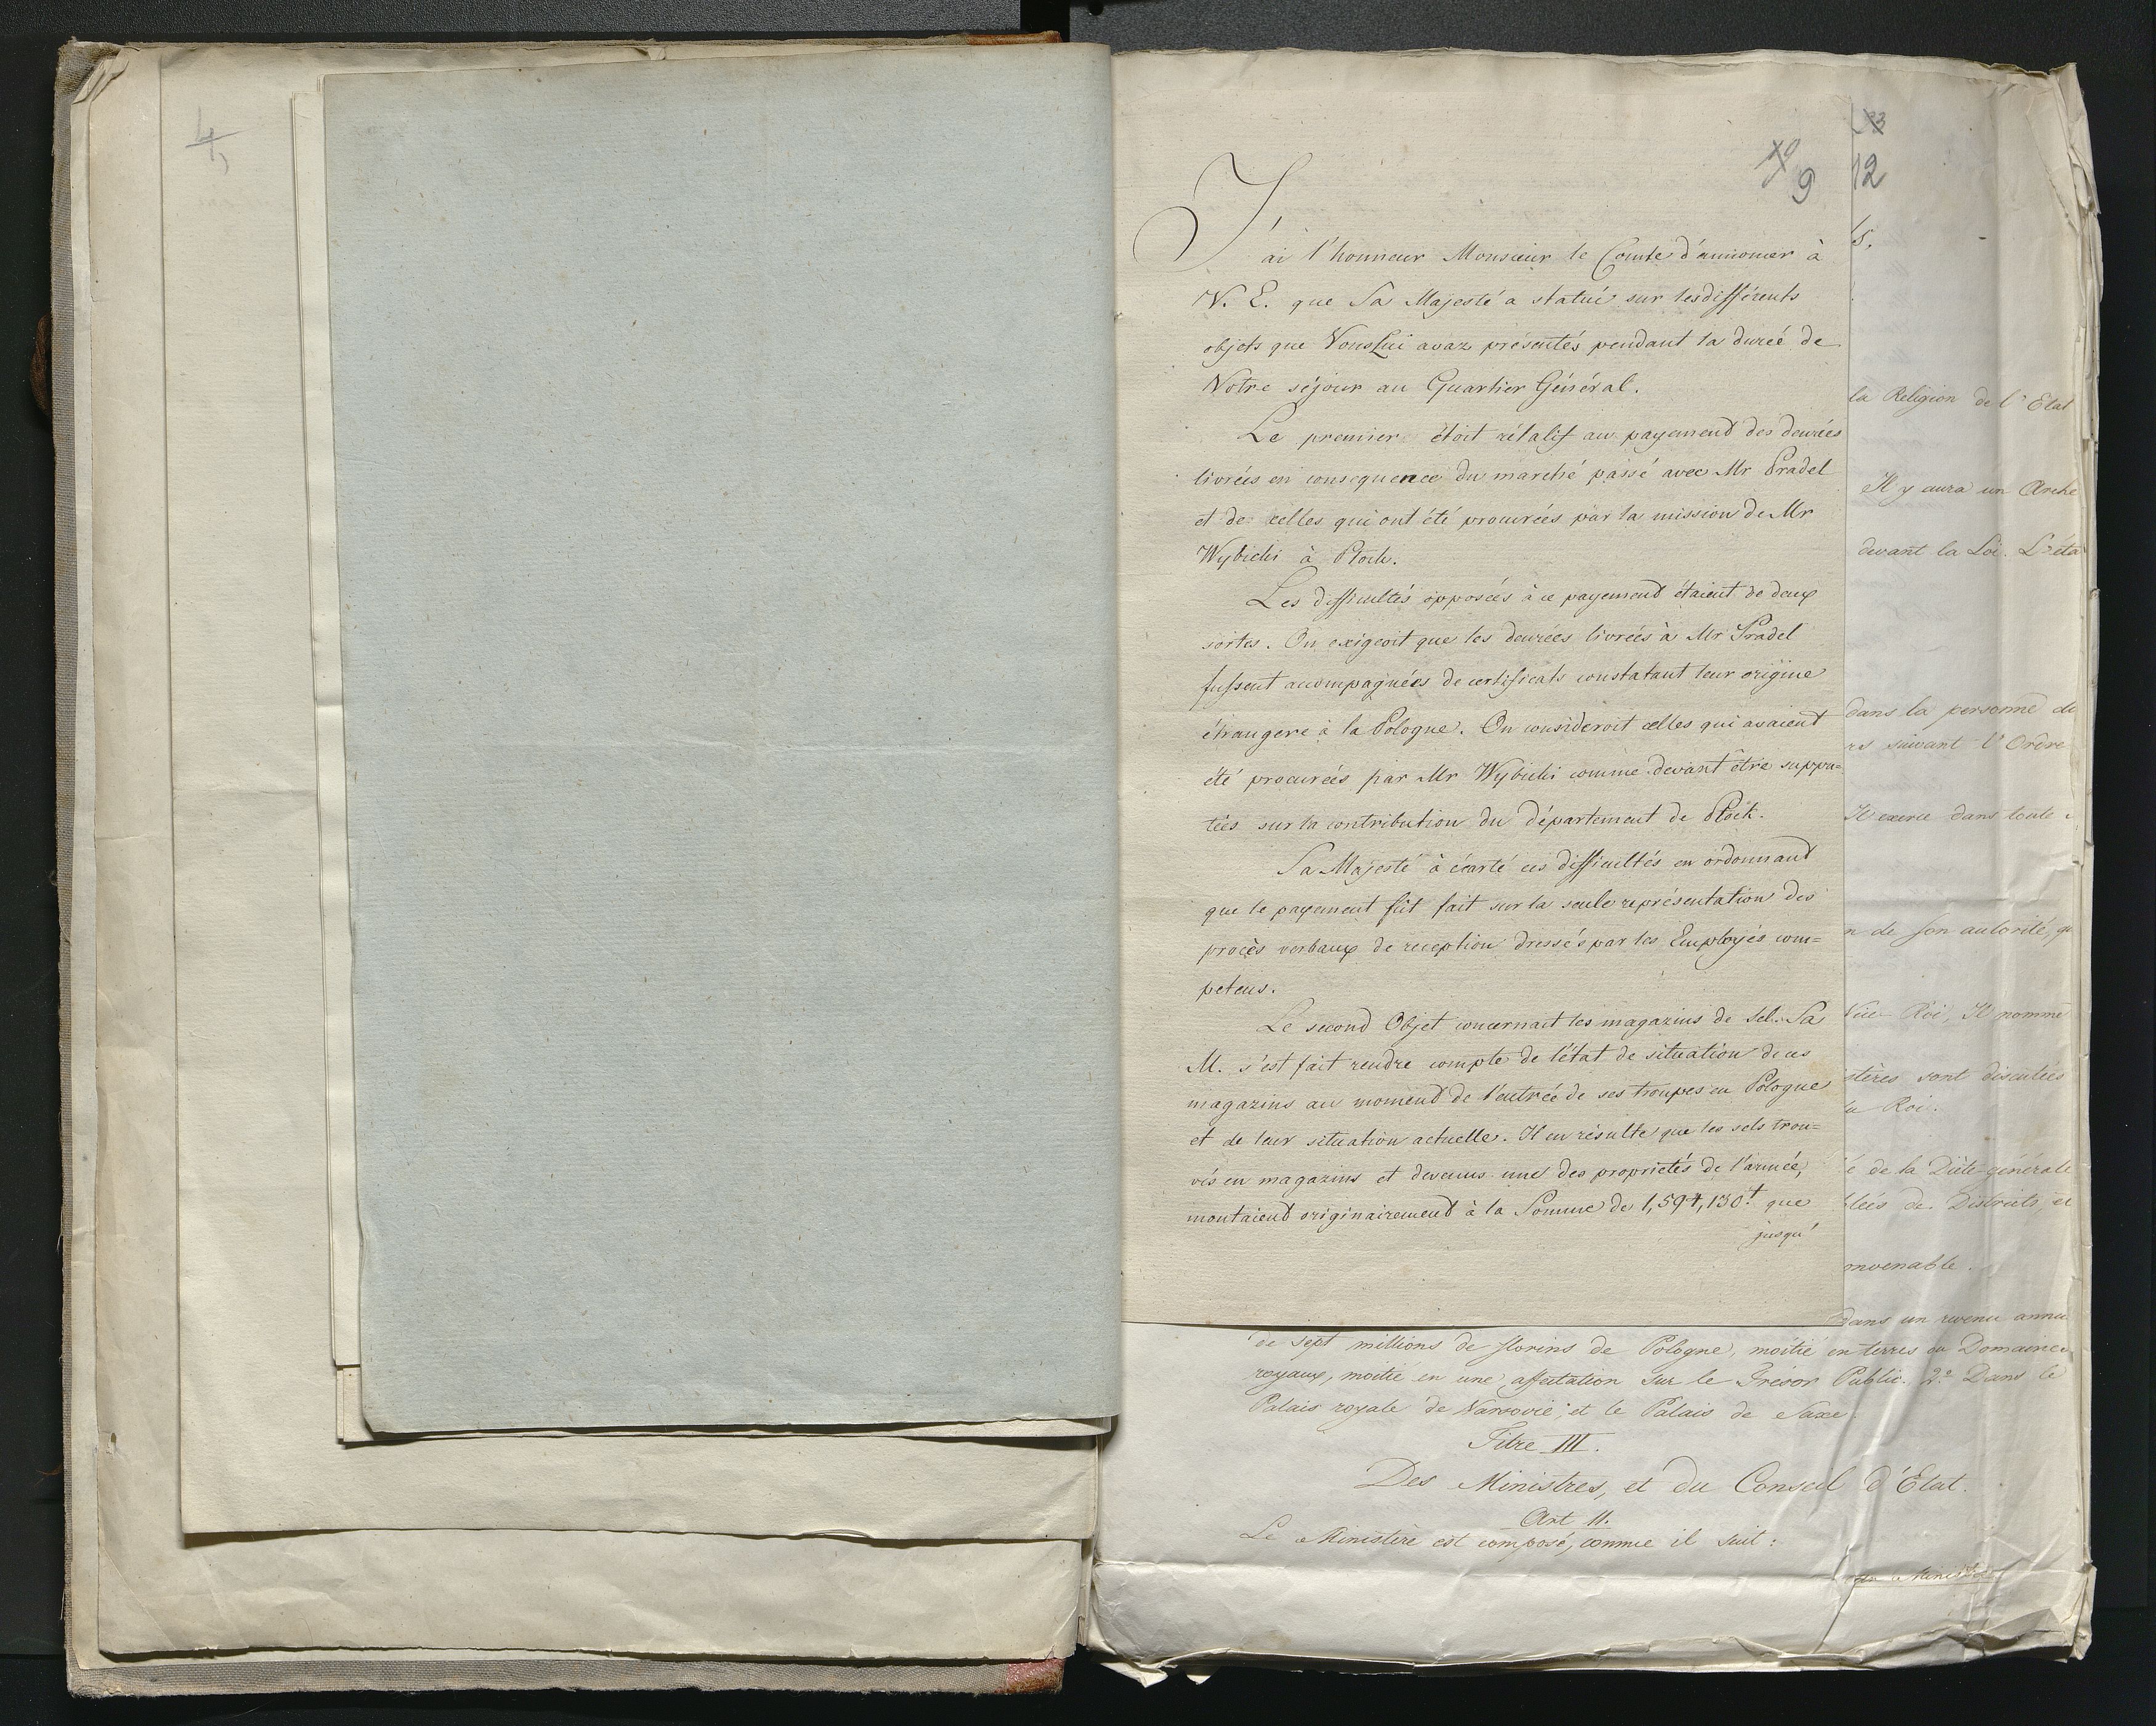 4/5
10
9
J'ai l'honneur Monsieur le Comte d'annoncer à
V. E. que Sa Majesté a statué sur les différents
objets que Vous Lui avaz présentés pendant la dureé de
Votre séjour au Quartier Général.
Le premier étoit rélatif au payemend des denrées
livrées en consequence du marché passé avec Mr Pradel
et de celles qui ont été procurées par la mission de Mr
Wybicki à Plock.
Les difficultés opposées à ce payemend étaient de deux
sortes. On exigeoit que les denrées livreés à Mr Pradel
fussent accompagnées de certificats constatant leur origine
étrangere à la Pologne. On consideroit celles qui avaient
été procurées par Mr Wybicki comme devant être suppu=
tées sur la contribution du département de Plock.
Sa Majesté à écarté ces difficultés en ordonnand
que le payement fût fait sur la seule représentation des
procès verbaux de reception dressés par les Employés com=
petens.
Le second Objet concernait les magazins de sel. Sa
M. s'est fait rendre compte de l'état de situation de ces
magazins au momend de l'entrée de ses troupes en Pologne
et de leur situation actuelle. Il en résulte que les sels trou=
vés en magazins et devenus une des proprietés de l'armée,
montaiend originairemend à la Somme de 1,594,130 t. que
jusqu'
13
12
s.
la Religion de l'Etat
Il y aura un Arche
devant la Loi. L'éta
dans la personne de
rs suivant l'Ordre
Il exerce dans toute
n de son autorité, qu
Vice-Roi, Il nomme
stères sont discutées
u Roi.
é de la Diète générale
bleés de Districts, et
nvenable.
dans un revenu annu
de sept millions de florins de Pologne, moitié en terres ou Domaines
royaux, moitié en une affectation sur le Trésor Public. 2º Dans le
Palais royale de Varsovie, et le Palais de Saxe.
Titre III.
Des Ministres, et du Conseil d'Etat.
Art 11.
Le Ministère est composé, comme il suit:
Ministre